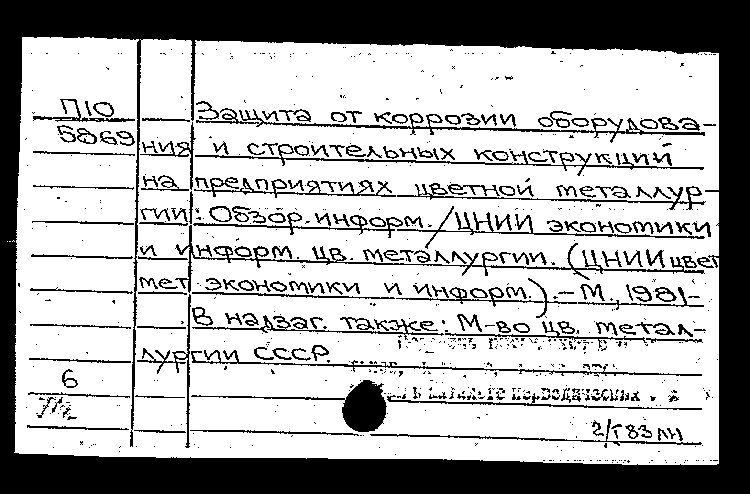 П10 Защита от коррозии оборудова-
5869 ния и строительных конструкций
на предприятиях цветной металлур-
гии: Обзор. информ. / ЦНИИ экономики
и информ. цв. металлургии. (ЦНИИцвет
мет экономики и информ.). – М., 1981-
В надзаг. также: М-во цв. метал-
лургии СССР.
6
в каталоге периодических
2/I 83 лн